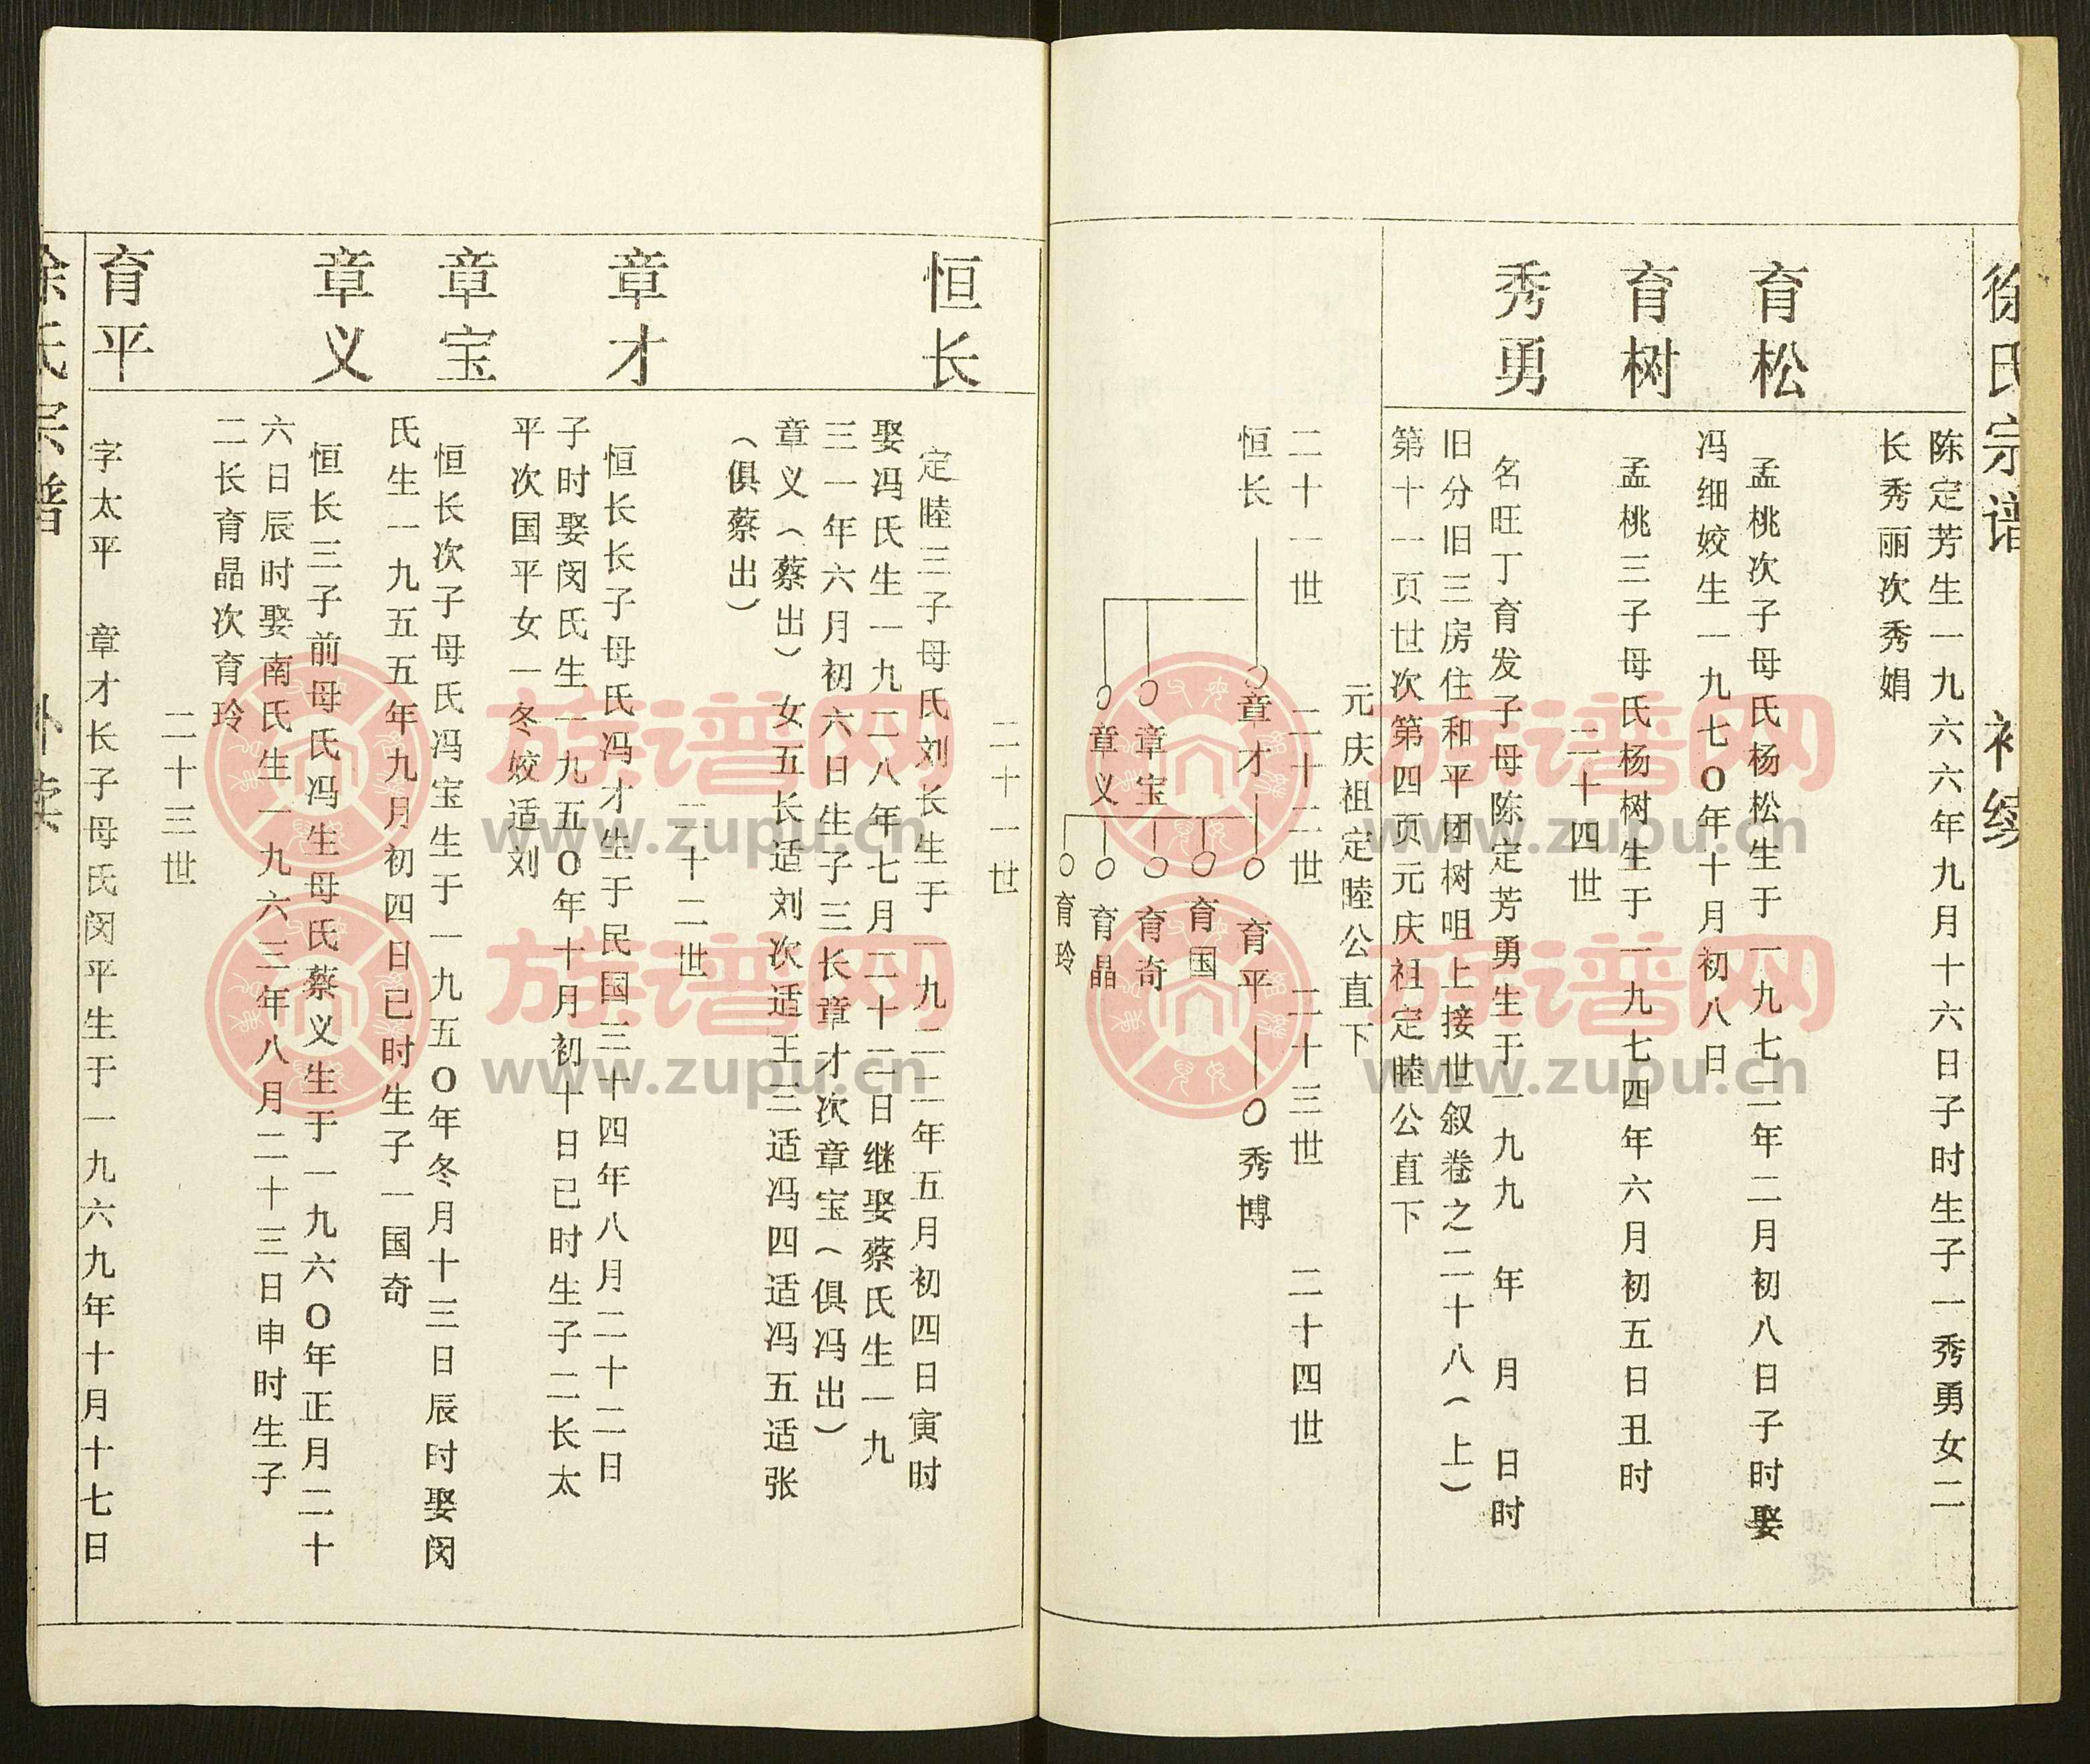 徐氏宗谱 补续
陈定芳生一九六六年九月十六日子时生子一秀勇女二
长秀丽次秀娟
育松
孟桃次子母氏杨松生于一九七二年二月初八日子时娶
冯细姣生一九七〇年十月初八日
育树
孟桃三子母氏杨树生于一九七四年六月初五日丑时
二十四世
秀勇
名旺丁育发子母陈定芳勇生于一九九 年 月 日时
旧分旧三房住和平团树咀上接世叙卷之二十八(上)
第十一页世次第四页元庆祖定睦公直下
元庆祖定睦公直下
二十一世 二十二世 二十三世 二十四世
恒长 章才 育平 秀博
育国
章宝 育奇
章义 育晶
育玲
二十一世
恒长
定睦三子母氏刘长生于一九二二年五月初四日寅时
娶冯氏生一九二八年七月二十二日继娶蔡氏生一九
三一年六月初六日生子三长章才次章宝(俱冯出)
章义(蔡出)女五长适刘次适王三适冯四适冯五适张
(俱蔡出)
二十二世
章才
恒长长子母氏冯才生于民国三十四年八月二十二日
子时娶闵氏生一九五〇年十月初十日已时生子二长太
平次国平女一冬姣适刘
章宝
恒长次子母氏冯宝生于一九五〇年冬月十三日辰时娶闵
氏生一九五五年九月初四日已时生子一国奇
章义
恒长三子前母氏冯生母氏蔡义生于一九六〇年正月二十
六日辰时娶南氏生一九六三年八月二十三日申时生子
二长育晶次育玲
二十三世
育平
字太平 章才长子母氏闵平生于一九六九年十月十七日
徐氏宗谱 补续
族谱网
www.zupu.cn
族谱网
www.zupu.cn
族谱网
www.zupu.cn
族谱网
www.zupu.cn